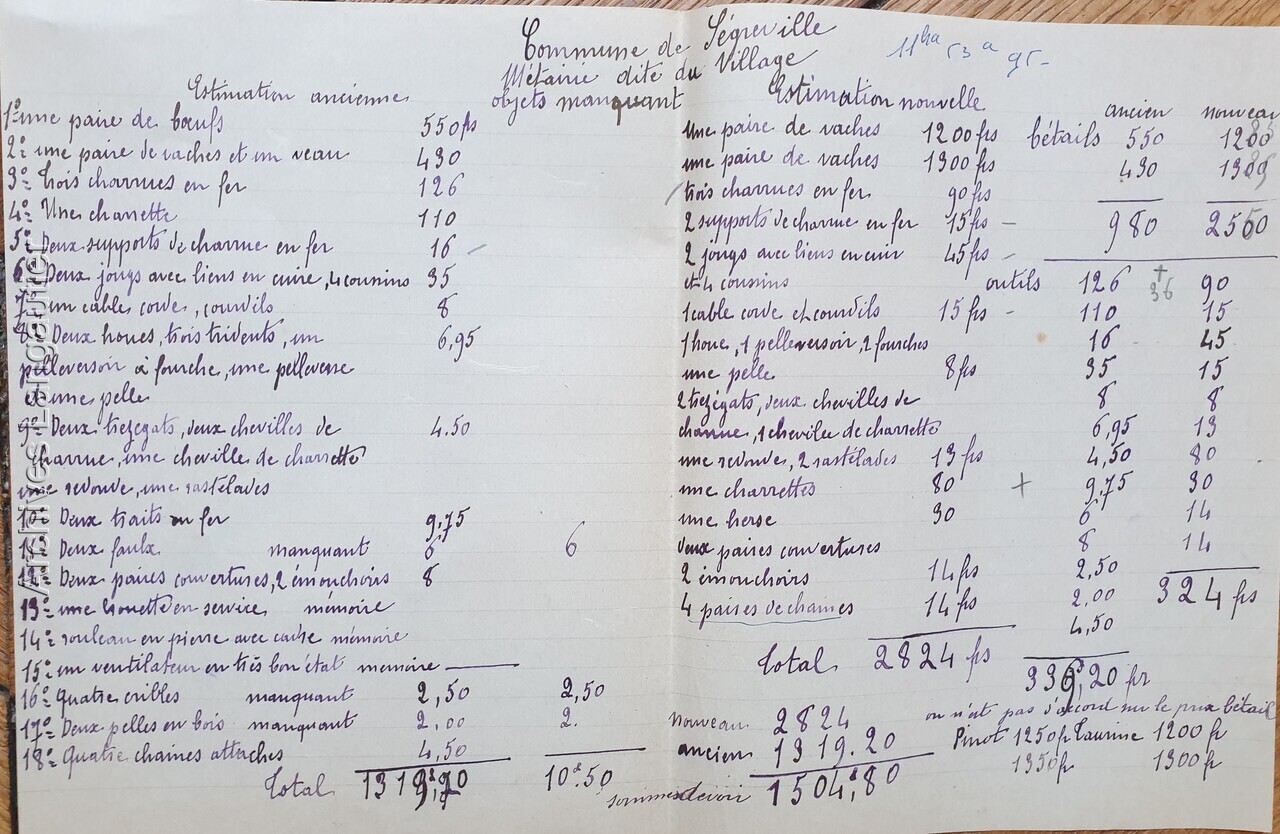 Commune de Ségreville
Métairie dite du Village
11ha 53a 95
Estimation ancienne
objets manquant
1º une paire de bœufs 550 frs
2º une paire de vaches et un veau 430
3º Trois charrues en fer 126
4º Une charrette 110
5º Deux supports de charrue en fer 16
6º Deux jougs avec liens en cuire, 4 cousins 35
7º un cables corde, courdils 8
8º Deux houes, trois tridents, un 6,95
pelleversoir à fourche, une pelleverse
et une pelle
9º Deux trezegats, deux chevilles de 4.50
charrue, une cheville de charrette
une redoude, une rastelades
10º Deux traits en fer 9,75
11º Deux faulx manquant 6 6
12º Deux paires couvertures, 2 émouchoirs 8
13º une en service mémoire
14º rouleau en pierre avec cadre mémoire
15º un ventilateur en très bon état memoire
16º quatre cribles manquant 2,50 2,50
17º Deux pelles en bois manquant 2,00 2.
18º quatre chaines attaches 4,50
Total 1319,20 10.50
Estimation nouvelle
Une paire de vaches 1200 frs
une paire de vaches 1300 frs
trois charrues en fer 90 frs
2 supports de charrue en fer 15 frs
2 jougs avec liens en cuir 45 frs
et 4 coussins
1 cable corde et courdils 15 frs
1 houe, 1 pelleversoir, 2 fourches
une pelle 8 frs
2 trezégats, deux chevilles de
charrue, 1 cheville de charrette
une redoude, 2 rastelades 13 frs
une charrettes 80
une herse 30
deux paires couvertures
2 émouchoirs 14 frs
4 paires de chaines 14 frs
Total 2824 frs
nouveau 2824
ancien 1319.20
1504,80
ancien nouveau
bétails 550 1200
430 1300
980 2550
outils 126 + 36 90
110 15
16 45
35 15
8 8
6,95 13
4,50 80
+ 9,75 30
6 14
8 14
2,50
2,00 324 frs
4,50
339,20 fr
on n'est pas d'accord sur le prix bétail
Pinot 1250 fr Taurine 1200 fr
1350 fr 1300 fr
Archives Languether